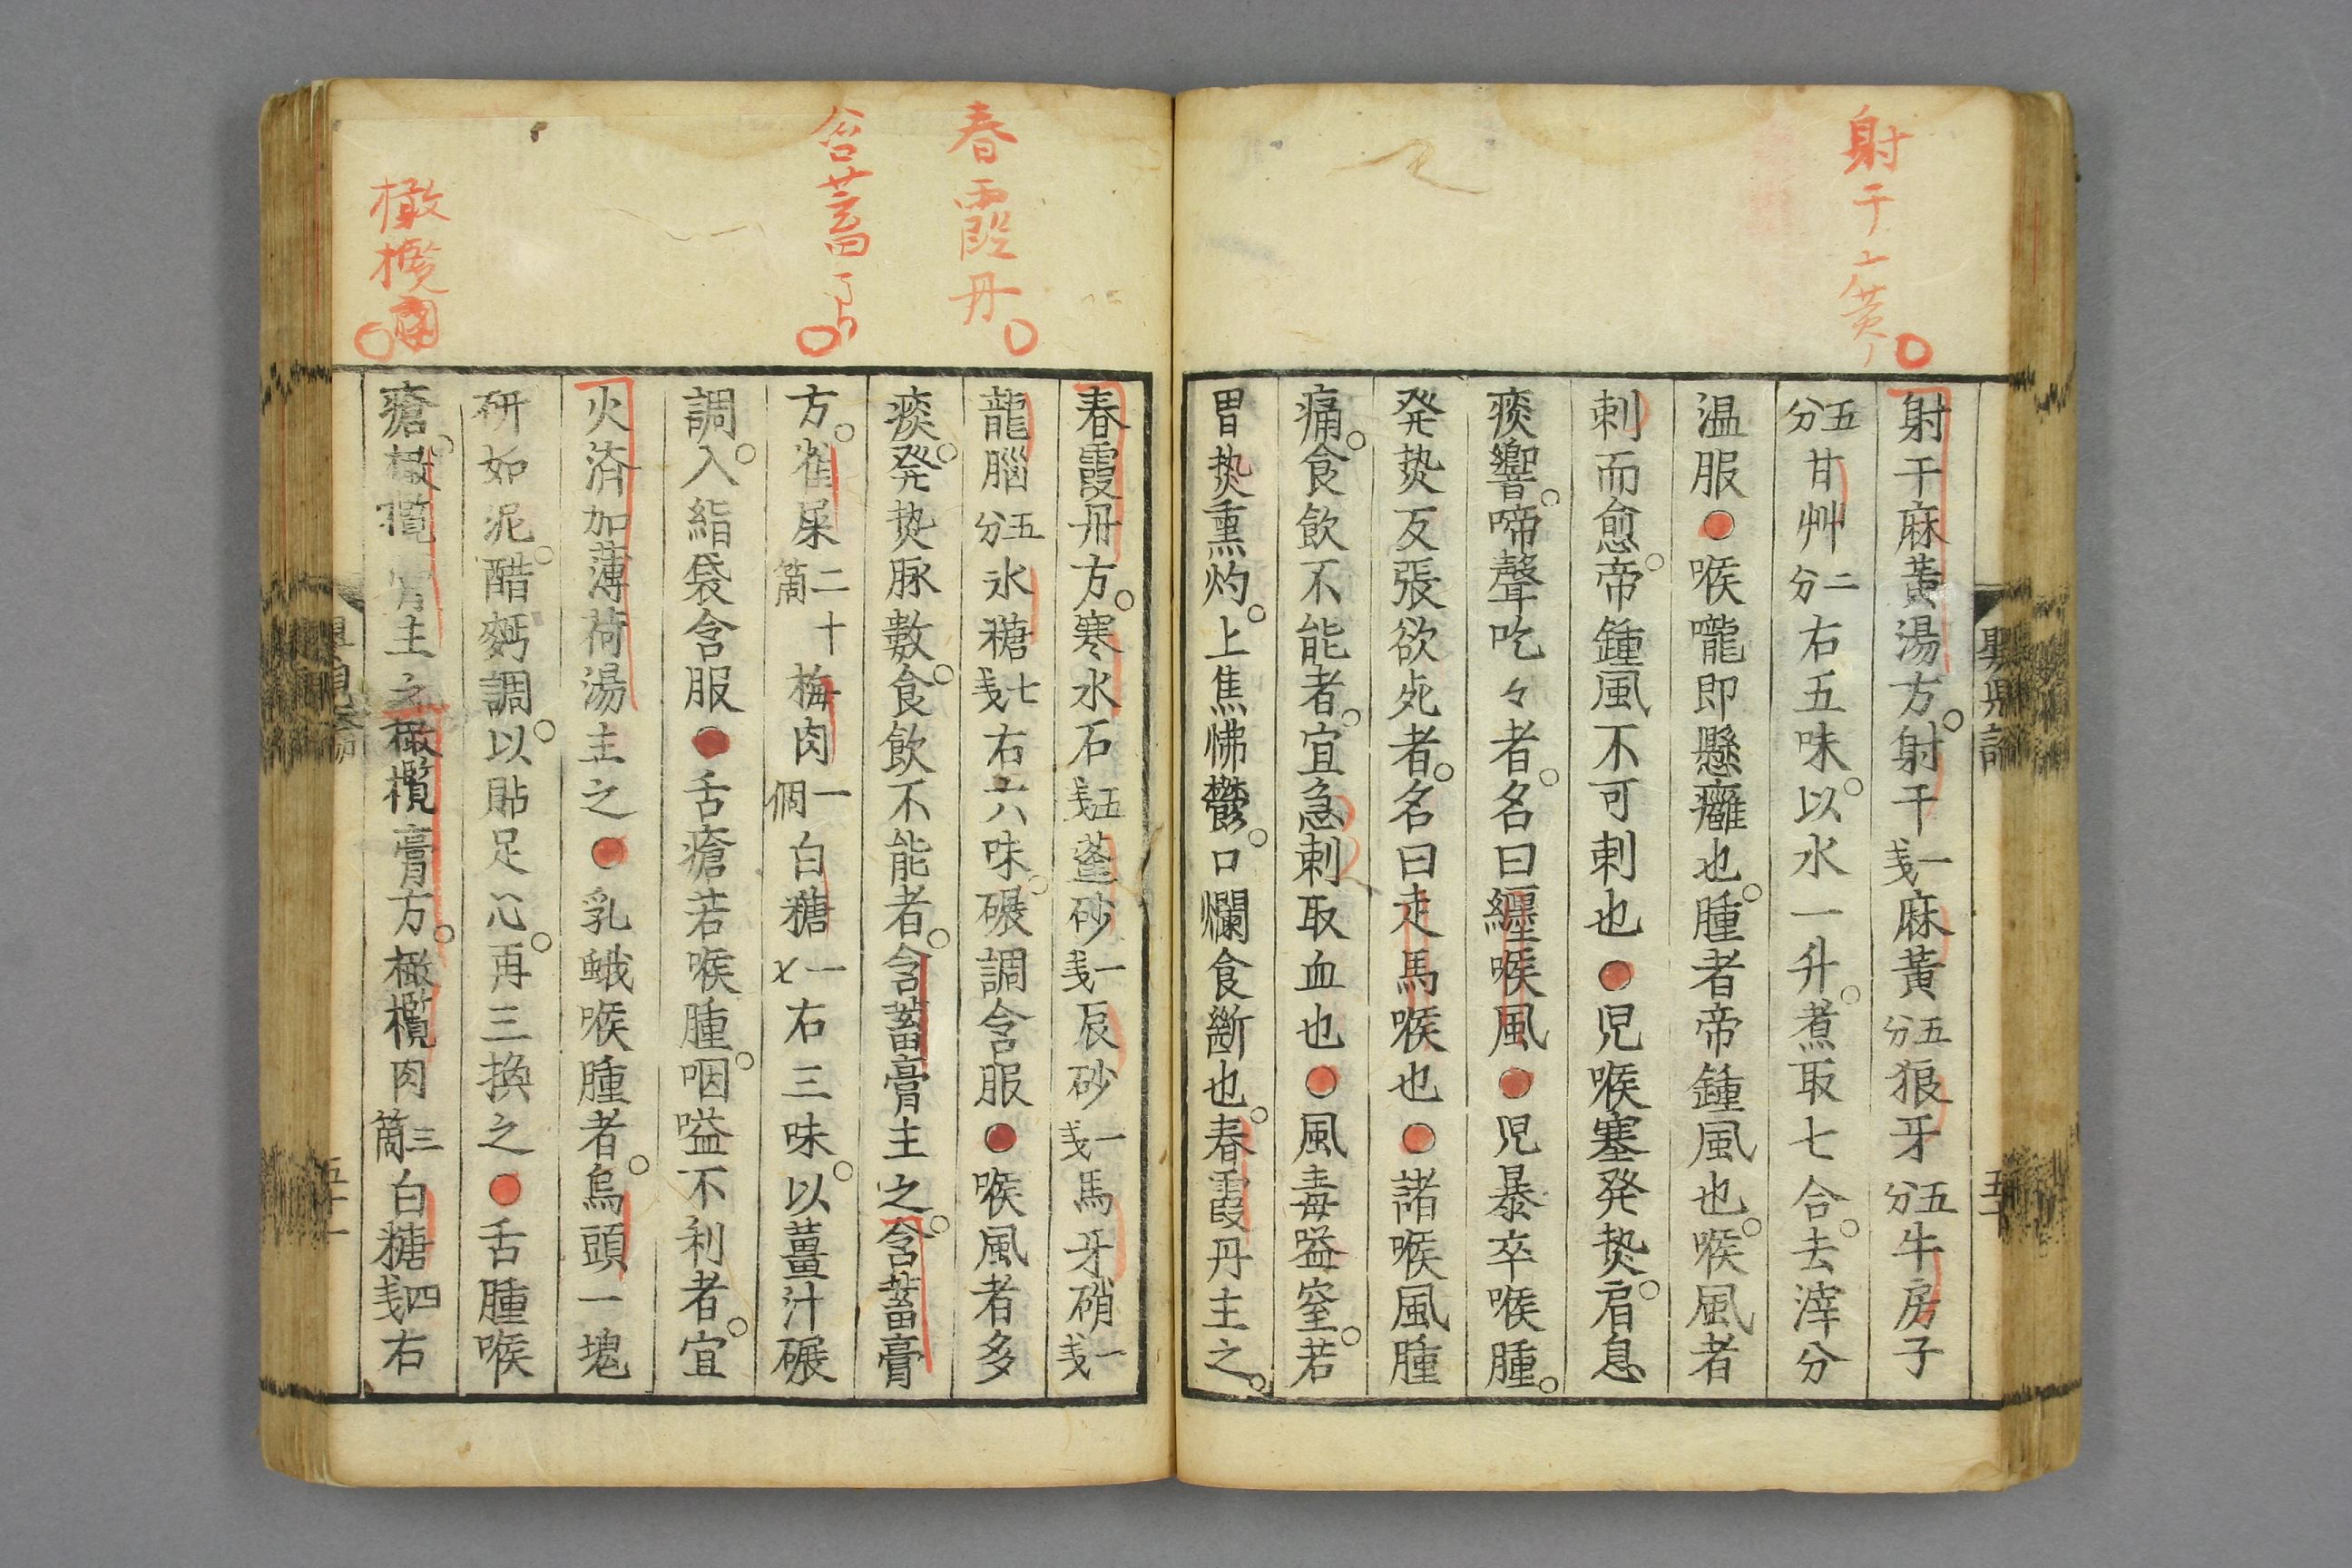 射干
春霞丹
含蓄
橄欖
射干麻黃湯方。射干一戋麻黃五分狼牙五分牛房子
五分甘艸二分右五味。以水一升。煮取七合。去滓分
温服●喉嚨即懸癰也。腫者帝鍾風也。喉風者
刺而愈。帝鍾風不可刺也●児喉塞発𤍠。肩息
痰響。啼聲吃々者。名曰纏喉風●児暴卒喉腫。
発𤍠反張欲死者。名曰走馬喉也●諸喉風腫
痛。食飲不能者。宜急刺取血也●風毒嗌窒。若
胃𤍠熏灼。上焦怫欝。口爛食断也。春霞丹主之。
春霞丹方。寒水石五戋蓬砂一戋辰砂一戋馬牙硝一戋
龍腦五分氷糖七戋右六味。碾調含服●喉風者多
痰。発𤍠脉數。食飲不能者。含蓄膏主之。含蓄膏
方。雀屎二十箇梅肉一個白糖一〤右三味。以薑汁碾
調。入絹袋含服●舌瘡若喉腫。咽嗌不利者。宜
火済加薄荷湯主之●乳蛾喉腫者。烏頭一塊
研如泥。醋麪調。以貼足心。再三換之●舌腫喉
瘡。橄欖膏主之橄欖膏方。橄欖肉三箇白糖四戋右